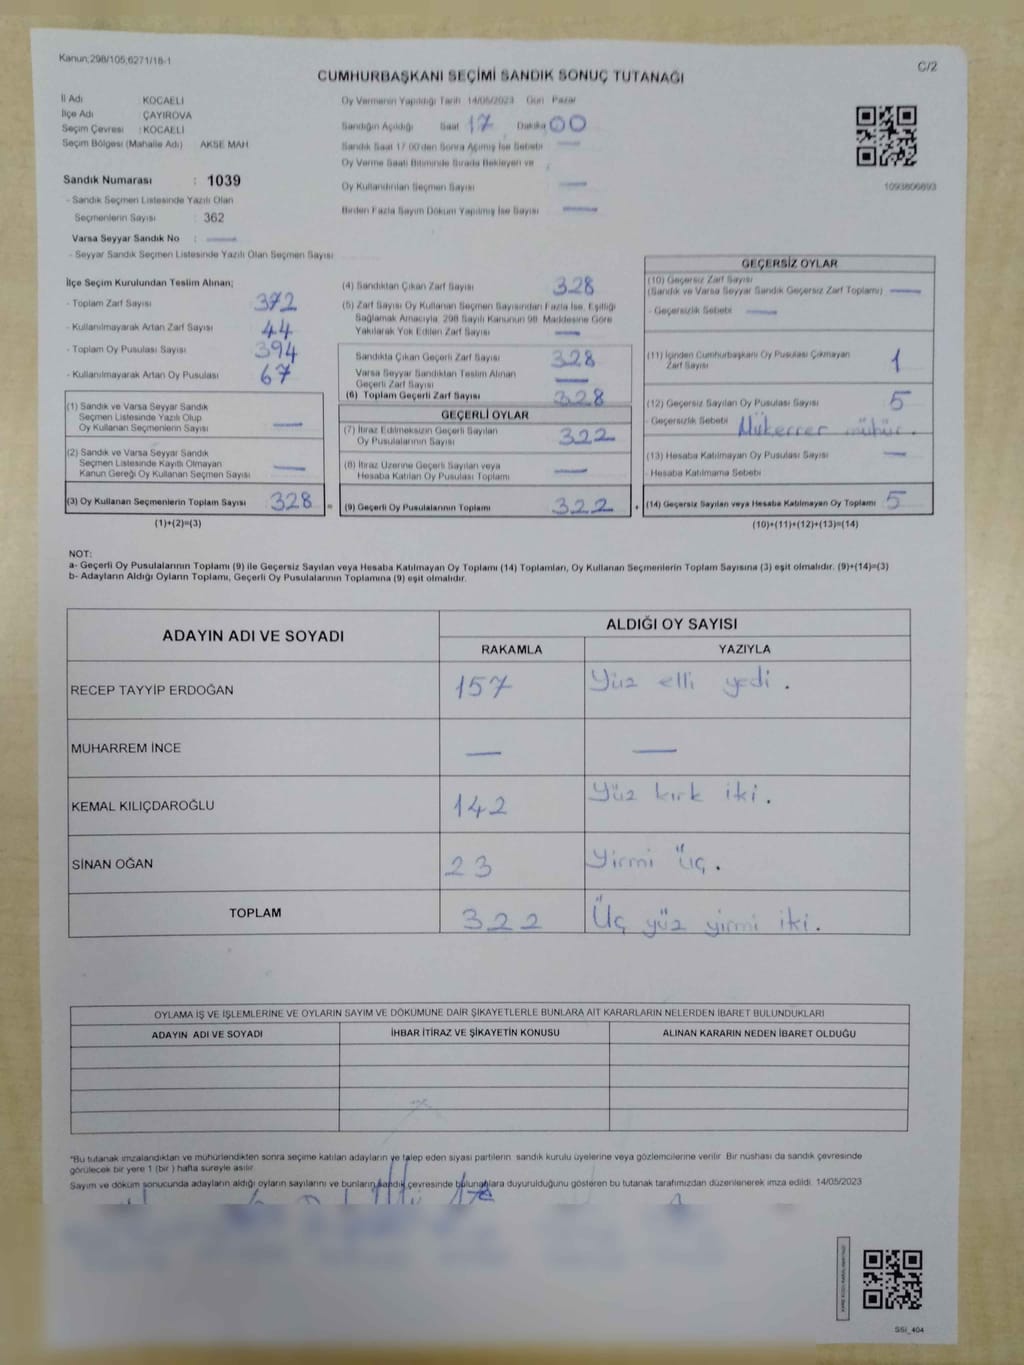 Kanun;298/105,6271/18-1
C/2
CUMHURBAŞKANI SEÇİMİ SANDIK SONUÇ TUTANAĞI
İl Adı KOCAELİ
İlçe Adı ÇAYIROVA
Seçim Çevresi : KOCAELİ
Seçim Bölgesi (Mahalle Adı) AKSE MAH.
Sandık Numarası : 1039
- Sandık Seçmen Listesinde Yazılı Olan
Seçmenlerin Sayısı 362
Varsa Seyyar Sandık No : —
- Seyyar Sandık Seçmen Listesinde Yazılı Olan Seçmen Sayısı
Oy Vermenin Yapıldığı Tarih 14/05/2023 Gün Pazar
Sandığın Açıldığı Saat 17 Dakika 00
Sandık Saat 17:00'den Sonra Açılmış İse Sebebi —
Oy Verme Saati Bitiminde Sırada Bekleyen ve
Oy Kullandırılan Seçmen Sayısı —
Birden Fazla Sayım Döküm Yapılmış İse Sayısı —
1093806693
İlçe Seçim Kurulundan Teslim Alınan;
- Toplam Zarf Sayısı 372
- Kullanılmayarak Artan Zarf Sayısı 44
- Toplam Oy Pusulası Sayısı 394
- Kullanılmayarak Artan Oy Pusulası 67
(1) Sandık ve Varsa Seyyar Sandık
Seçmen Listesinde Yazılı Olup
Oy Kullanan Seçmenlerin Sayısı —
(2) Sandık ve Varsa Seyyar Sandık
Seçmen Listesinde Kayıtlı Olmayan
Kanun Gereği Oy Kullanan Seçmen Sayısı —
(3) Oy Kullanan Seçmenlerin Toplam Sayısı 328 =
(1)+(2)=(3)
(4) Sandıktan Çıkan Zarf Sayısı 328
(5) Zarf Sayısı Oy Kullanan Seçmen Sayısından Fazla İse, Eşitliği
Sağlamak Amacıyla, 298 Sayılı Kanunun 98. Maddesine Göre
Yakılarak Yok Edilen Zarf Sayısı —
Sandıkta Çıkan Geçerli Zarf Sayısı 328
Varsa Seyyar Sandıktan Teslim Alınan
Geçerli Zarf Sayısı —
(6) Toplam Geçerli Zarf Sayısı 328
GEÇERLİ OYLAR
(7) İtiraz Edilmeksizin Geçerli Sayılan
Oy Pusulalarının Sayısı 322
(8) İtiraz Üzerine Geçerli Sayılan veya
Hesaba Katılan Oy Pusulası Toplamı —
(9) Geçerli Oy Pusulalarının Toplamı 322 +
GEÇERSİZ OYLAR
(10) Geçersiz Zarf Sayısı
(Sandık ve Varsa Seyyar Sandık Geçersiz Zarf Toplamı) —
- Geçersizlik Sebebi —
(11) İçinden Cumhurbaşkanı Oy Pusulası Çıkmayan
Zarf Sayısı 1
(12) Geçersiz Sayılan Oy Pusulası Sayısı 5
- Geçersizlik Sebebi Mükerrer mühür.
(13) Hesaba Katılmayan Oy Pusulası Sayısı —
Hesaba Katılmama Sebebi
(14) Geçersiz Sayılan veya Hesaba Katılmayan Oy Toplamı 5
(10)+(11)+(12)+(13)=(14)
NOT:
a- Geçerli Oy Pusulalarının Toplamı (9) ile Geçersiz Sayılan veya Hesaba Katılmayan Oy Toplamı (14) Toplamları, Oy Kullanan Seçmenlerin Toplam Sayısına (3) eşit olmalıdır. (9)+(14)=(3)
b- Adayların Aldığı Oyların Toplamı, Geçerli Oy Pusulalarının Toplamına (9) eşit olmalıdır.
ADAYIN ADI VE SOYADI
ALDIĞI OY SAYISI
RAKAMLA YAZIYLA
RECEP TAYYİP ERDOĞAN 157 Yüz elli yedi.
MUHARREM İNCE — —
KEMAL KILIÇDAROĞLU 142 Yüz kırk iki.
SİNAN OĞAN 23 Yirmi üç.
TOPLAM 322 Üç yüz yirmi iki.
OYLAMA İŞ VE İŞLEMLERİNE VE OYLARIN SAYIM VE DÖKÜMÜNE DAİR ŞİKAYETLERLE BUNLARA AİT KARARLARIN NELERDEN İBARET BULUNDUKLARI
ADAYIN ADI VE SOYADI İHBAR İTİRAZ VE ŞİKAYETİN KONUSU ALINAN KARARIN NEDEN İBARET OLDUĞU
*Bu tutanak imzalandıktan ve mühürlendikten sonra seçime katılan adayların ve talep eden siyasi partilerin sandık kurulu üyelerine veya gözlemcilerine verilir. Bir nüshası da sandık çevresinde
görülecek bir yere 1 (bir) hafta süreyle asılır.
Sayım ve döküm sonucunda adayların aldığı oyların sayılarını ve bunların sandık çevresinde bulunanlara duyurulduğunu gösteren bu tutanak tarafımızdan düzenlenerek imza edildi. 14/05/2023
SSİ_404